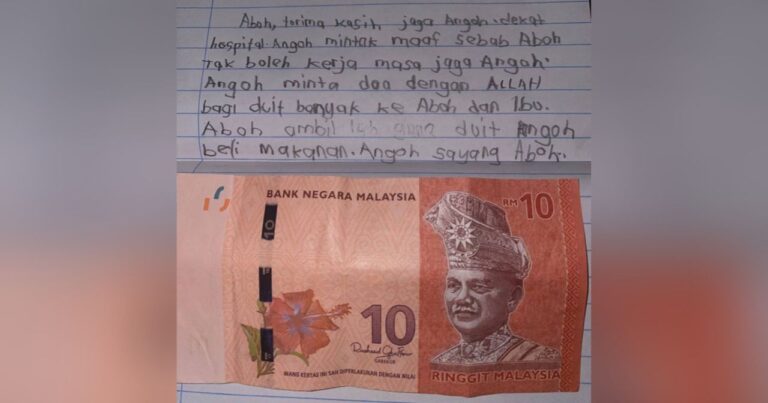 Aboh, torima kasih jaga Angah dekat
hospital. Angah mintak maaf sebab Aboh
Tak boleh kerja masa jaga Angah.
Angah minta doa dengan ALLAH
bagi duit banyak ke Aboh dan Ibu.
Aboh ambil lah duit Angah
beli makanan. Angah sayang Aboh.
BANK NEGARA MALAYSIA
RM 10
10
10
GABENOR
WANG KERTAS INI SAH DIPERLAKUKAN DENGAN NILAI
RINGGIT MALAYSIA